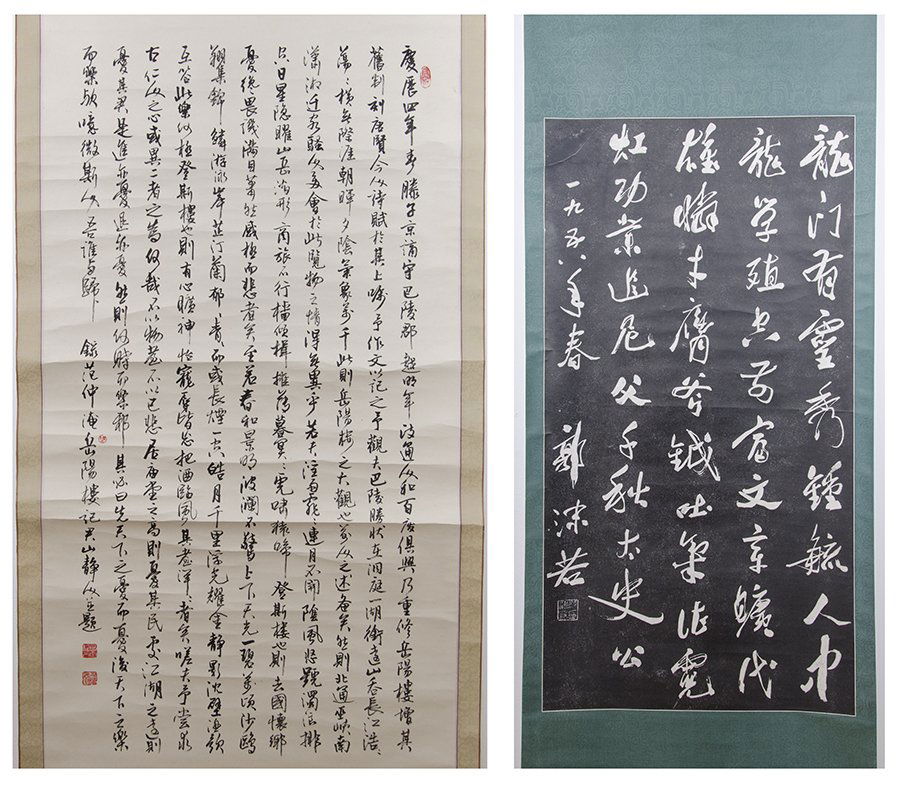 慶歷四年春滕子京謫守巴陵郡越明年政通人和百廢俱興乃重修岳陽樓增其
舊制刻唐賢今人詩賦於其上囑予作文以記之予觀夫巴陵勝狀在洞庭一湖銜遠山吞長江浩〻
蕩〻橫無際涯朝暉夕陰氣象萬千此則岳陽樓之大觀也前人之述備矣然則北通巫峽南
瀟湘遷客騷人多會於此覽物之情得無異乎若夫淫雨霏〻連月不開陰風怒號濁浪排
空日星隱曜山岳潛形商旅不行檣傾楫摧薄暮冥〻虎嘯猿啼登斯樓也則去國懷鄉
憂讒畏譏滿目蕭然感極而悲者矣至若春和景明波瀾不驚上下天光一碧萬頃沙鷗
翔集錦鱗游泳岸芷汀蘭郁〻青〻而或長煙一空皓月千里浮光耀金靜影沈璧漁歌
互答此樂何極登斯樓也則有心曠神怡寵辱皆忘把酒臨風其喜洋〻者矣嗟夫予嘗求
古仁人之心或異二者之為何哉不以物喜不以己悲居廟堂之高則憂其民處江湖之遠則
憂其君是進亦憂退亦憂然則何時而樂耶其必曰先天下之憂而憂後天下之樂
而樂歟噫微斯人吾誰與歸 錄范仲淹岳陽樓記君山靜人並題
龍门有靈秀鍾毓人中
龍学殖空前富文章曠代
雄憐才膺斧鉞吐氣作霓
虹功業追尼父千秋太史公
一九五八年春 郭沫若